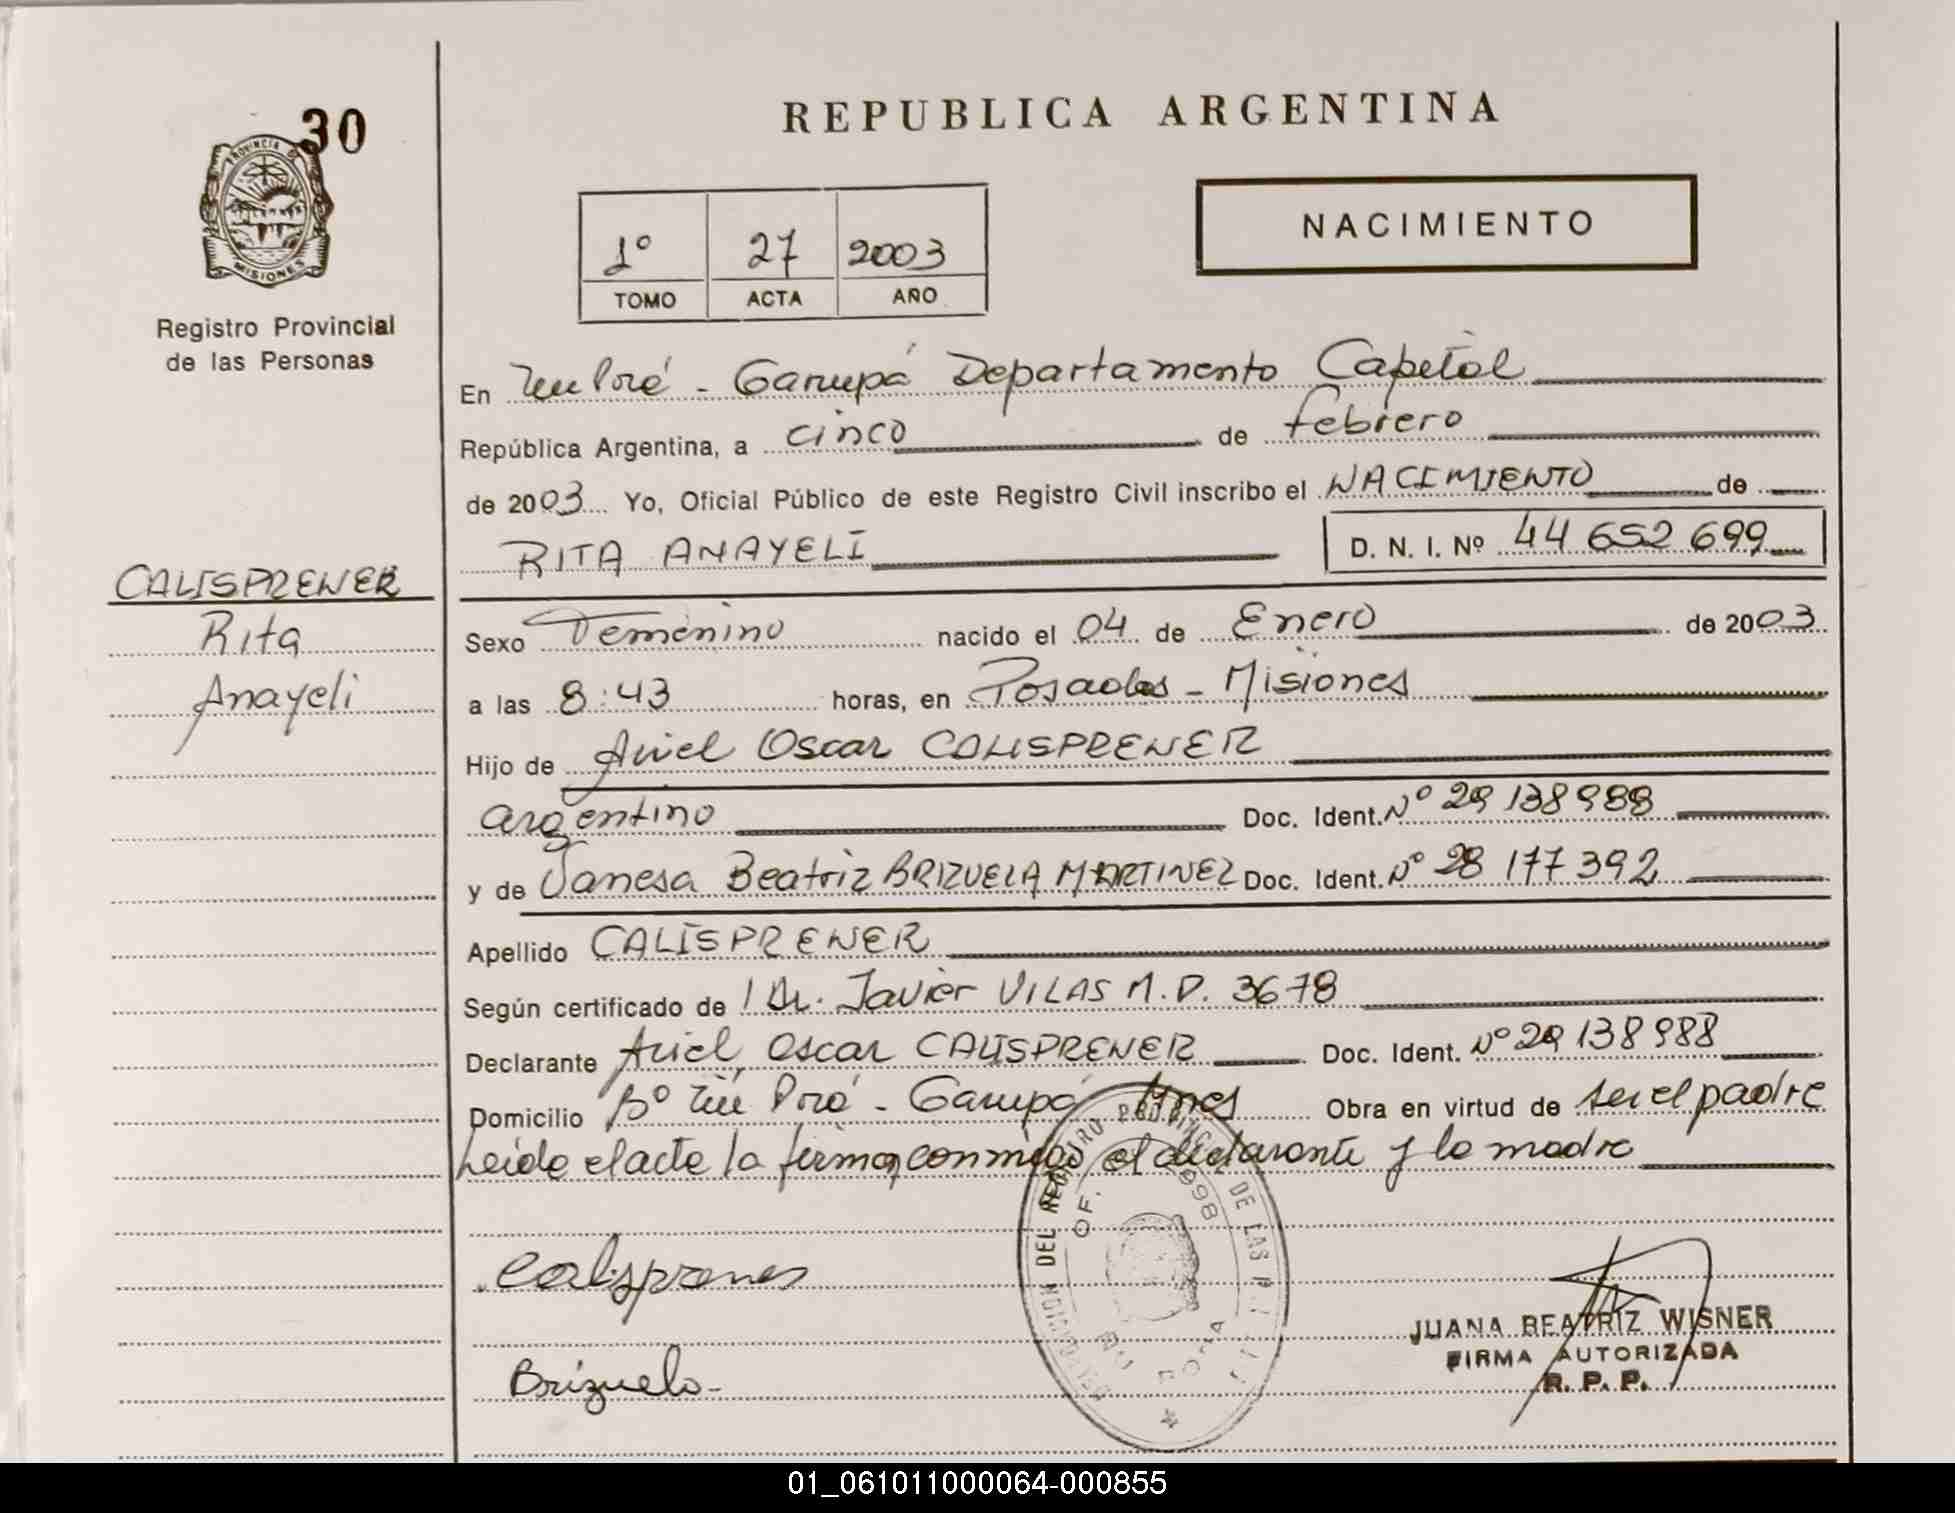 30
PROVINCIA DE
MISIONES
Registro Provincial
de las Personas
REPUBLICA ARGENTINA
1º 27 2003
TOMO ACTA AÑO
NACIMIENTO
En Ñu Porá - Garupá Departamento Capital
República Argentina, a cinco de febrero
de 2003 Yo, Oficial Público de este Registro Civil inscribo el NACIMIENTO de
RITA ANAYELI D. N. I. Nº 44 652 699
CALISPRENER
Rita
Anayeli
Sexo Femenino nacido el 04 de Enero de 2003
a las 8:43 horas, en Posadas - Misiones
Hijo de Ariel Oscar CALISPRENER
argentino Doc. Ident. Nº 29 138 988
y de Vanesa Beatriz BRIZUELA MARTINEZ Doc. Ident. Nº 28 177 392
Apellido CALISPRENER
Según certificado de Dr. Javier VILAS M.P. 3678
Declarante Ariel Oscar CALISPRENER Doc. Ident. Nº 29 138 988
Domicilio Bº Ñu Porá - Garupá Mnes Obra en virtud de ser el padre
Leida el acta la firman conmigo el declarante y la madre
DELEGACION DEL REGISTRO PROVINCIAL DE LAS
OF. 998
ÑU PORA
Calisprener
Brizuela
JUANA BEATRIZ WISNER
FIRMA AUTORIZADA
R. P. P.
01_061011000064-000855